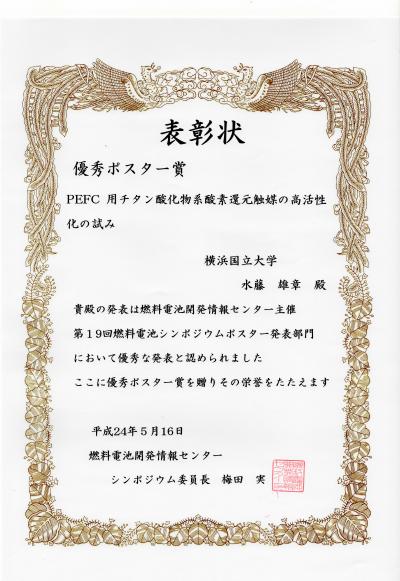 表彰状
優秀ポスター賞
PEFC 用チタン酸化物系酸素還元触媒の高活性
化の試み
横浜国立大学
水藤 雄章 殿
貴殿の発表は燃料電池開発情報センター主催
第19回燃料電池シンポジウムポスター発表部門
において優秀な発表と認められました
ここに優秀ポスター賞を贈りその栄誉をたたえます
平成24年5月16日
燃料電池開発情報センター
シンポジウム委員長 梅田 実